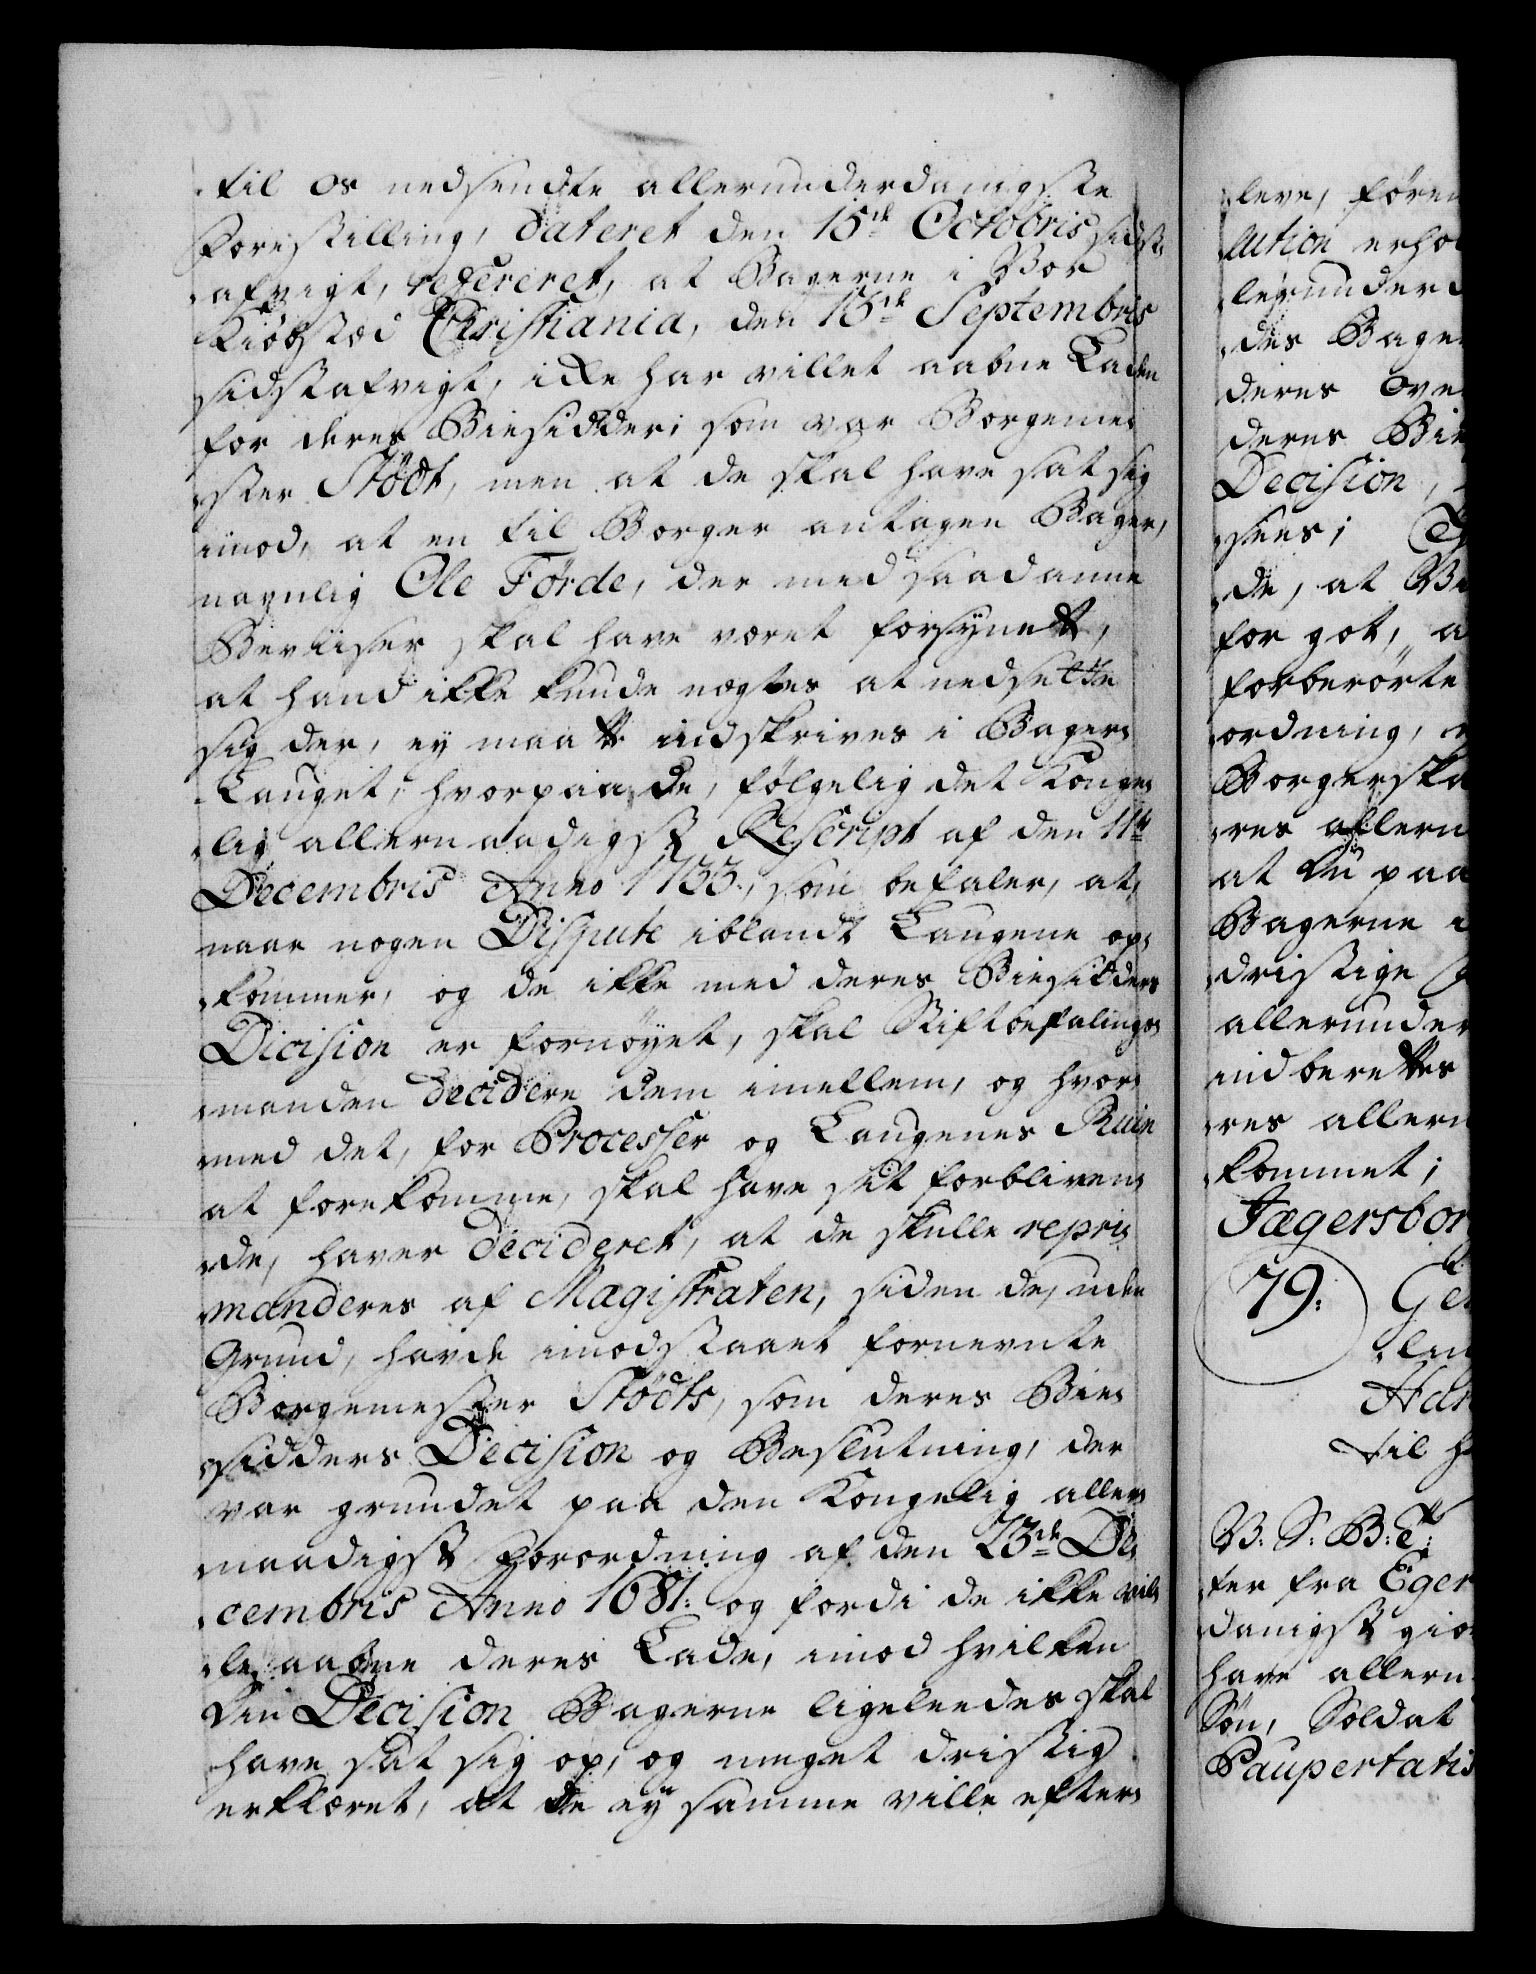 til os nedsendte allerunderdanigste
Forestilling, dateret den 15de Octobris sidst
afvigt, refereret, at Bagerne i Vor
Kiøbstæd Christiania, den 15de Septembris
sidstafvigt, icke har villet aabne Laden
for deres Biesidder; som var Borgeme-
ster Stödt, men at de skal have sat sig
imod, at en til Borger antagen Bager,
navnlig Ole Förde, der med saadanne
Beviiser skal have været forsynedt,
at hand ikke kunde nægtes at nedsette
sig der, ey maatte indskrives i Bager-
Lauget, hvorpaa du, følgelig det Konge-
lig allernaadigst Rescript af den 11te
Decembris Anno 1733., som befaler, at,
naar nogen Dispute iblandt Laugene op-
kommer, og de ikke med deres Biesidders
Dicision er fornøyet, skal Stiftbefalings-
manden decidere dem imellem, og hvor-
med det, for Processer og Laugenes Ruin
at forekomme, skal have sit forbliven-
de, haver decideret, at de skulle repri-
manderes af Magistraten, siden de, uden
Grund, havde imodstaaet fornevnte
Borgemester Stödts, som deres Bie-
sidders Decision og Beslutning, der
var grundet paa den Kongelig aller-
naadigst Forordning af den 23de De-
cembris Anno 1681. og fordi de ikke vil-
le aabne deres Lade, imod hvilken
Din Decision Bagerne ligeleedes skal
have sat sig op, og meget dristig
erklæret, at de ey samme ville efter-
leve, føren
lution erhol
lerunderd
des Bager
deres Ove
deres Bie
Decision,
sees;
de, at
for got, a
forberörte
ordning,
Borgerska
res allern
at du paa
Bagerne i
dristige
allerunder
indberettes
res allern
kommet;
Jægersbor
79. Ge
Han
til h
V. S. B. T.
ter fra Eger
danigst gio
have allern
Søn, Soldat
Paupertatis